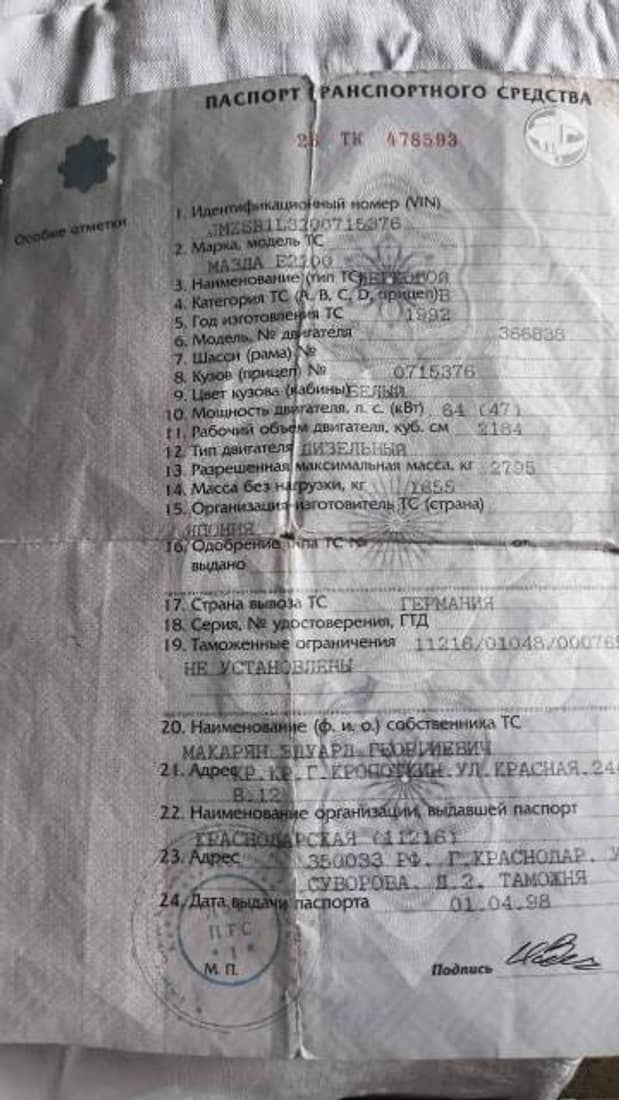 ПАСПОРТ ТРАНСПОРТНОГО СРЕДСТВА
23 ТК 478593
Особые отметки
1. Идентификационный номер (VIN)
JMZSR1L3200715376
2. Марка, модель ТС
МАЗДА E2200
3. Наименование (тип ТС) ЛЕГКОВОЙ
4. Категория ТС (А, В, С, D, прицеп) В
5. Год изготовления ТС 1992
6. Модель, № двигателя 366836
7. Шасси (рама) №
8. Кузов (прицеп) № 0715376
9. Цвет кузова (кабины) БЕЛЫЙ
10. Мощность двигателя, л. с. (кВт) 64 (47)
11. Рабочий объем двигателя, куб. см 2184
12. Тип двигателя ДИЗЕЛЬНЫЙ
13. Разрешенная максимальная масса, кг 2795
14. Масса без нагрузки, кг 1655
15. Организация-изготовитель ТС (страна)
ЯПОНИЯ
16. Одобрение типа ТС № от
выдано
17. Страна вывоза ТС ГЕРМАНИЯ
18. Серия, № удостоверения, ГТД
19. Таможенные ограничения 11216/01048/000765
НЕ УСТАНОВЛЕНЫ
20. Наименование (ф. и. о.) собственника ТС
МАКАРЯН ЭДУАРД ГЕОРГИЕВИЧ
21. Адрес КР.КР.Г.КРОПОТКИН.УЛ.КРАСНАЯ.24
В.12
22. Наименование организации, выдавшей паспорт
КРАСНОДАРСКАЯ (11216)
23. Адрес 350033 РФ. Г.КРАСНОДАР. У
СУВОРОВА. Д.2. ТАМОЖНЯ
24. Дата выдачи паспорта 01.04.98
ПТС
1
М. П.
Подпись